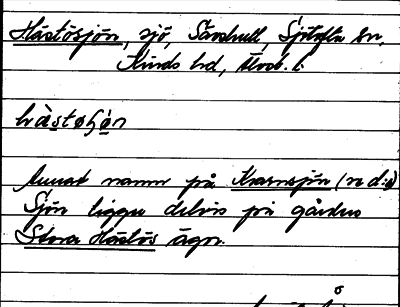 Håstösjön, sjö, Sandhult, Sjötofta sn,
Kinds hd, Älvsb. l.
Annat namn på Kvarnsjön (n d:o)
Sjön ligger delvis på gården
Stora Håstös ägor.